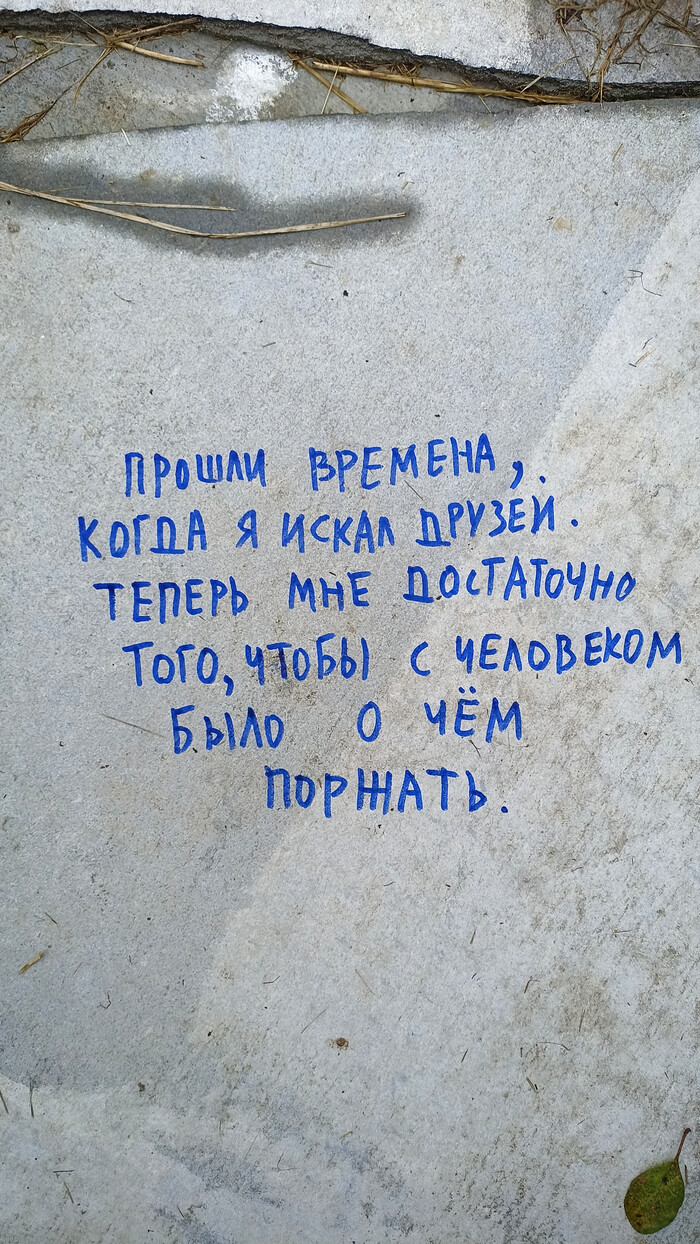 ПРОШЛИ ВРЕМЕНА,.
КОГДА Я ИСКАЛ ДРУЗЕЙ.
ТЕПЕРЬ МНЕ ДОСТАТОЧНО
ТОГО, ЧТОБЫ С ЧЕЛОВЕКОМ
БЫЛО О ЧЁМ
ПОРЖАТЬ.